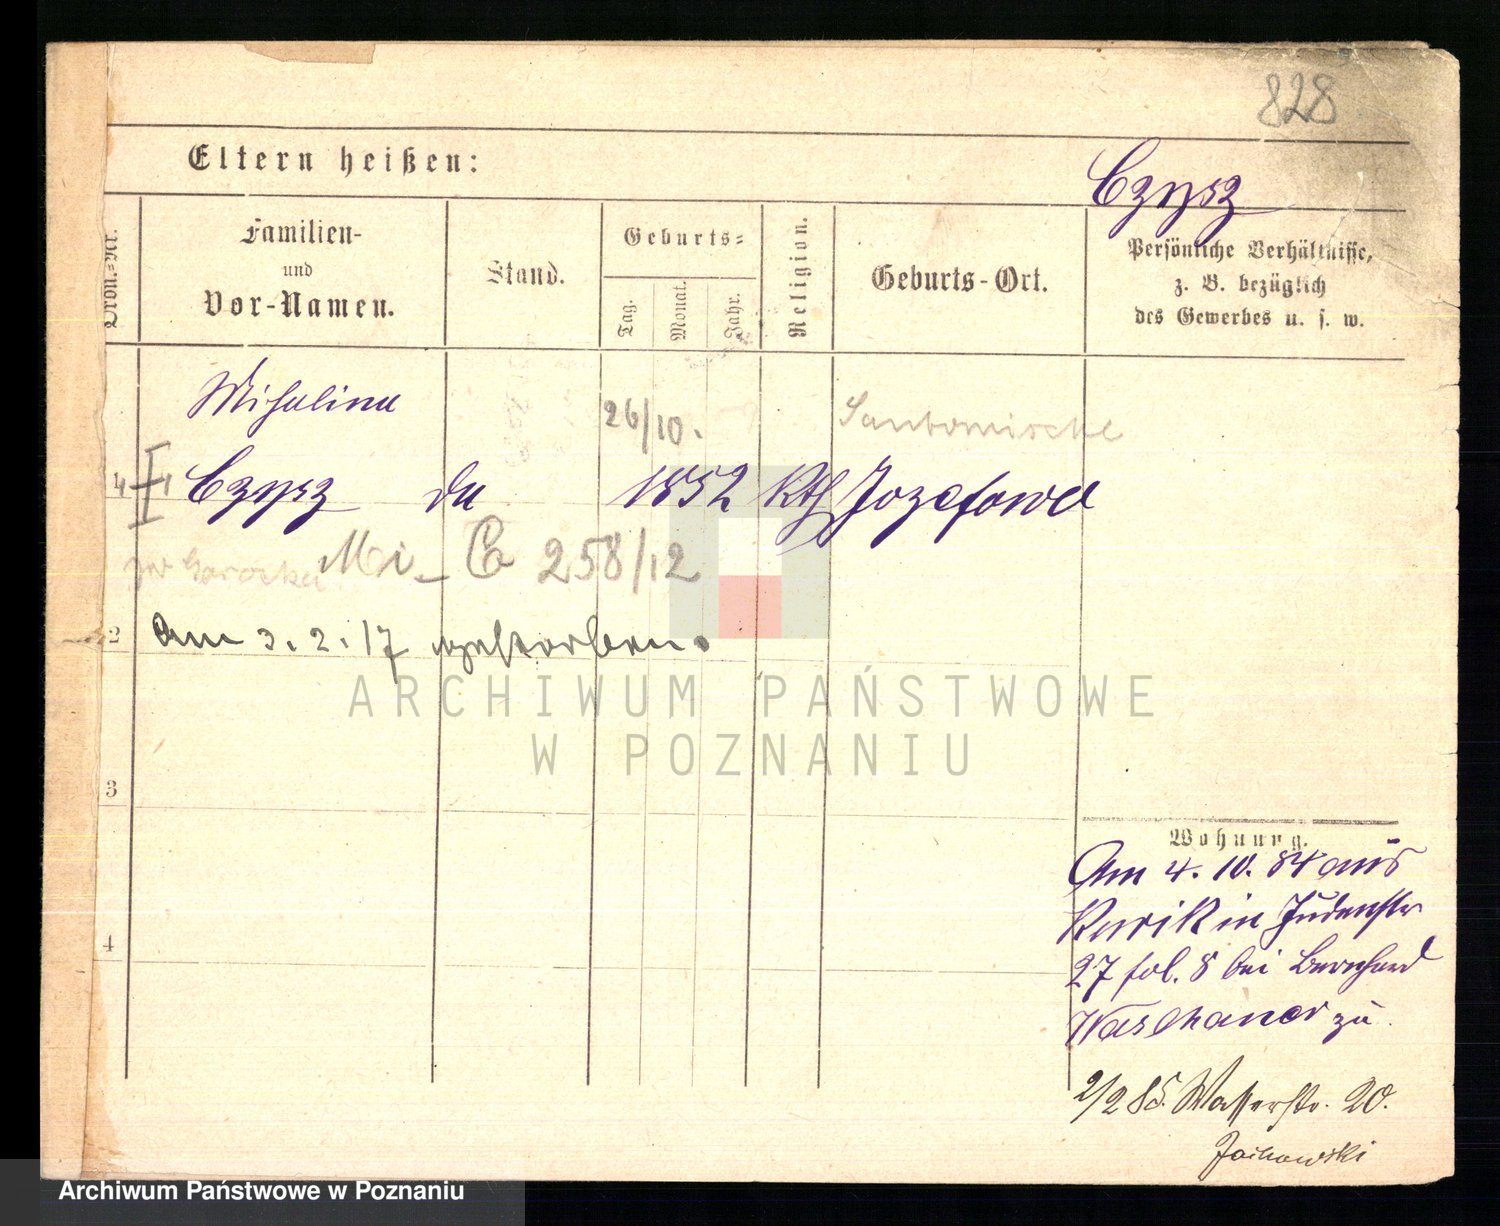 828
Eltern heißen:
Czysz
Ordn.-Nr.
Familien-
und
Vor-Namen.
Stand.
Geburts-
Tag.
Monat.
Jahr.
Religion.
Geburts-Ort.
Persönliche Verhältnisse,
z. B. bezüglich
des Gewerbes u. s. w.
Michalina
26/10.
Santomischel
1 Czysz 1852 Kth Jozefowo
Mi - Cz 258/12
2 Am 3. 2. 17 gestorben.
ARCHIWUM PAŃSTWOWE
W POZNANIU
3
Wohnung.
Am 4. 10. 84 aus
Kurnik in Judenstr
4
27 fol. 8 bei Bernhard
zu
2/2 85. Wasserstr. 20.
Archiwum Państwowe w Poznaniu